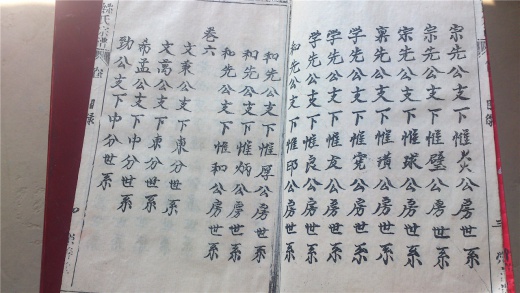 宗先公支下惟炎公房世系
宗先公支下惟璧公房世系
宗先公支下惟球公房世系
禀先公支下惟璜公房世系
学先公支下惟寛公房世系
学先公支下惟友公房世系
学先公支下惟良公房世系
和先公支下惟卬公房世系
和先公支下惟厚公房世系
和先公支下惟炳公房世系
和先公支下惟和公房世系
卷六
文秉公支下东分世系
文蒿公支下东分世系
希孟公支下中分世系
劲公支下中分世系
目录
目录
三
四